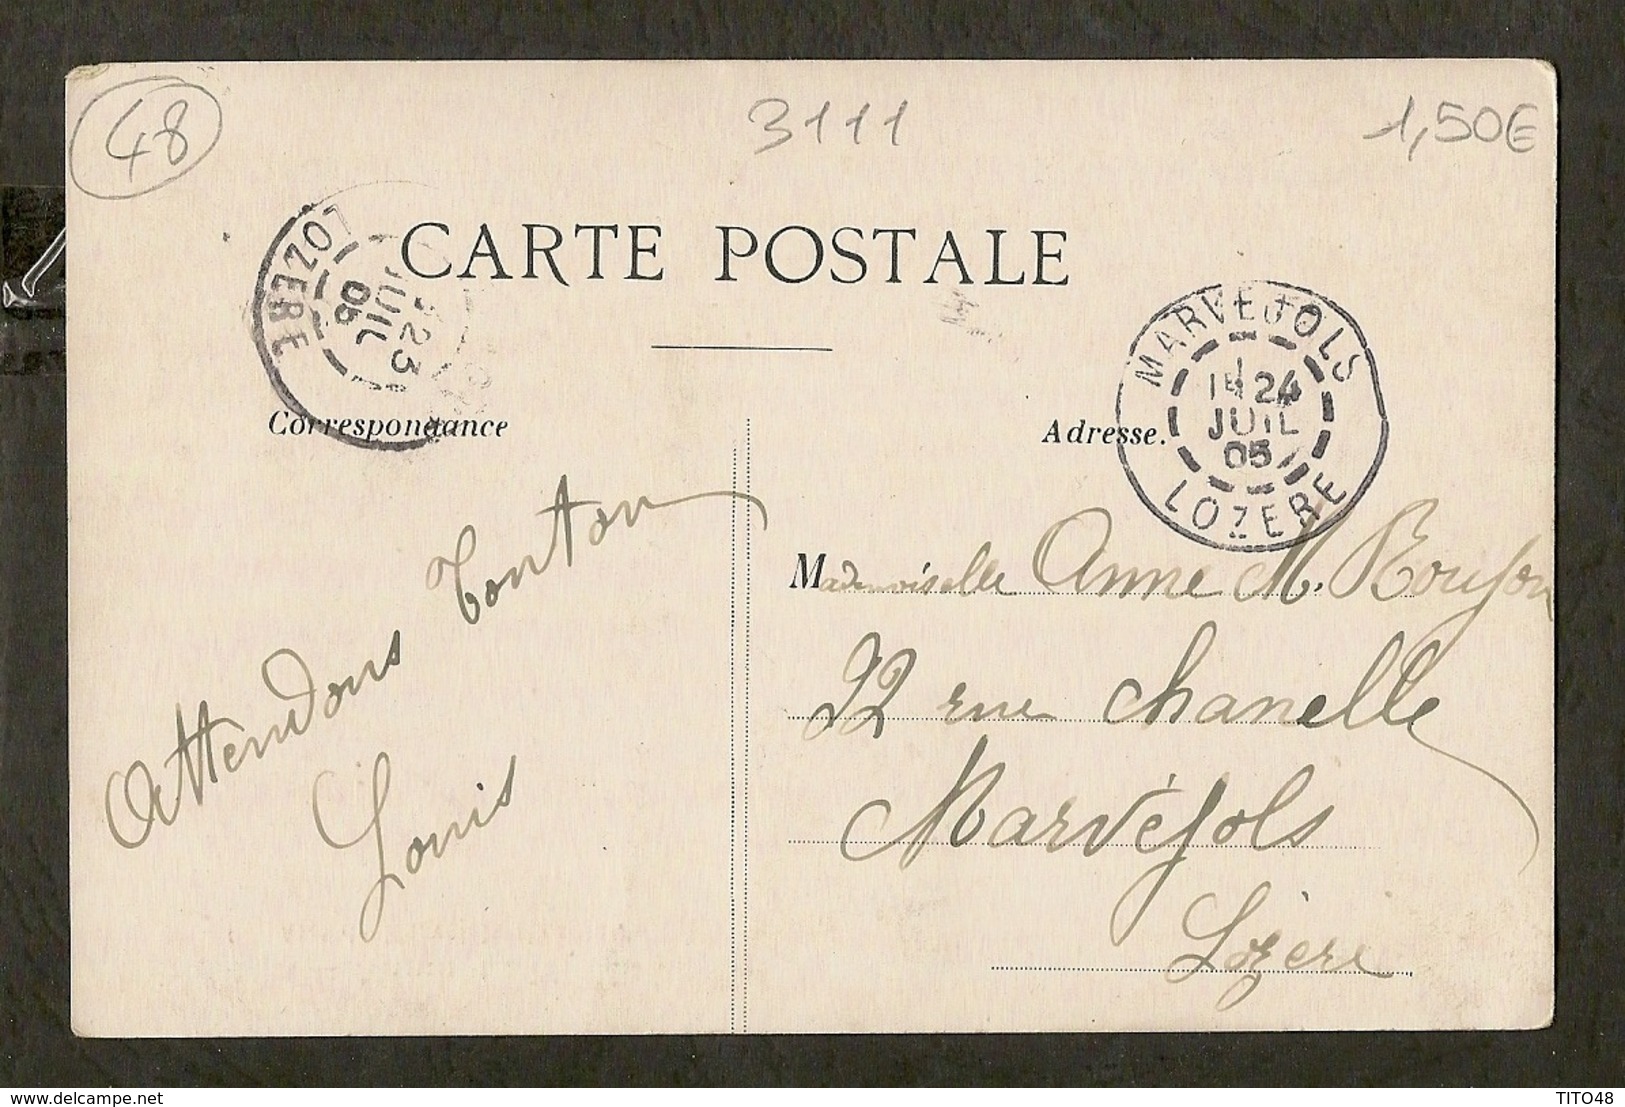 48
3111
1,50€
CARTE POSTALE
LOZERE
23
JUIL
05
MARVEJOLS
1E 24
JUIL
05
LOZERE
Correspondance
Adresse.
Attendons Tonton
Louis
Mademoiselle Anne M.
22 rue Chanelle
Marvéjols
Lozère
delcampe.net
TITO48